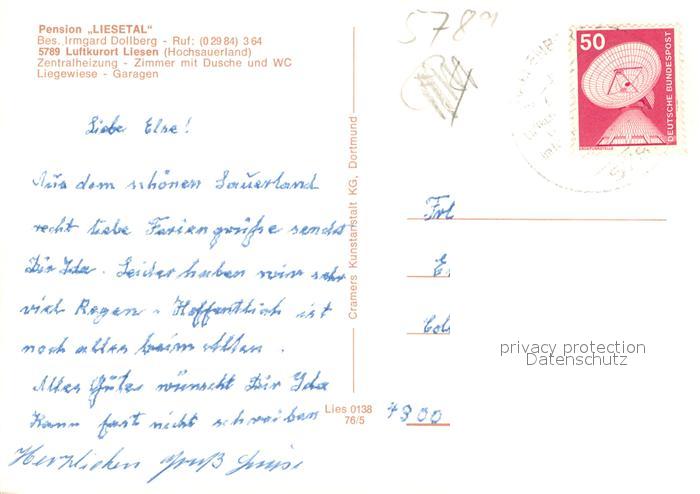 Pension „LIESETAL"
Bes. Irmgard Dollberg - Ruf: (0 29 84) 3 64
5789 Luftkurort Liesen (Hochsauerland)
Zentralheizung - Zimmer mit Dusche und WC
Liegewiese - Garagen
Liebe Else!
Aus dem schönen Sauerland
recht liebe Feriengrüße sendet
Dir Ida. Leider haben wir sehr
viel Regen. Hoffentlich ist
noch alles beim Alten.
Alles Gute wünscht Dir Ida
Kann fast nicht schreiben
Herzlichen Gruß
Cramers Kunstanstalt KG, Dortmund
Lies 0138
76/5
5789
50
DEUTSCHE BUNDESPOST
Frl
privacy protection
Datenschutz